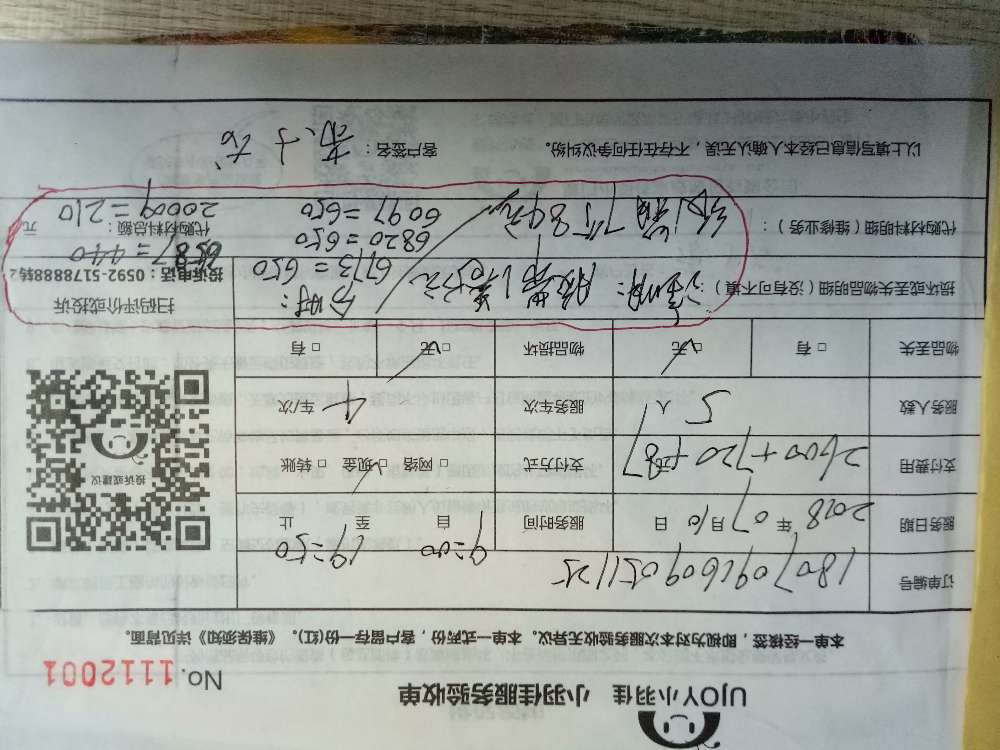 UJOY小羽佳 小羽佳服务验收单
No. 1112001
本单一经核签,即视为对本次服务验收无异议。本单一式两份,客户留存一份(红)。《维保须知》详见背面。
订单编号 1807091609051125
服务日期 2018 年 07 月 10 日 服务时间 自 9:00 至 19:50 止
支付费用 2600+720+87 元 支付方式 □ 网络 □ 现金 □ 转账
服务人数 5 人 服务车次 4 车/次
物品丢失 □ 有 □ 无 物品损坏 □ 无 □ 有
投诉或建议
扫码评价或投诉
投诉电话:0592-5178888转2
损坏或丢失物品明细(没有可不填):
注明:
6773=650
代购材料明细(维修业务):
6820=650
6097=650
代购材料总额: 元
=440
20009=210
以上填写信息已经本人确认无误,不存在任何争议纠纷。 客户签名: